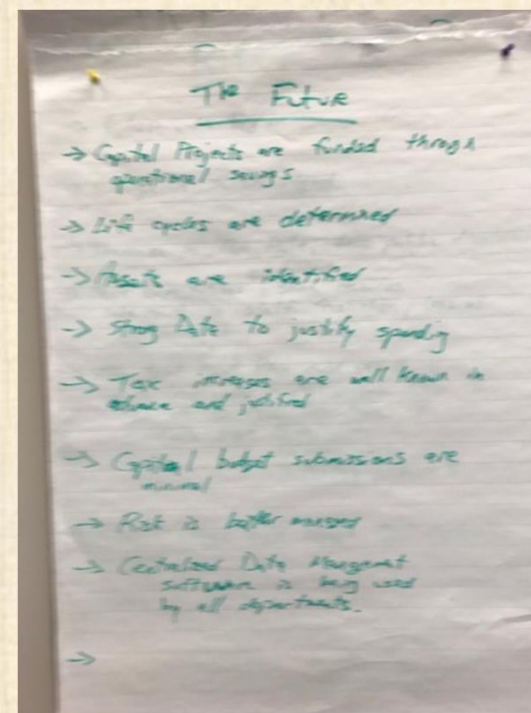 The Future
→ Capital Projects are funded through
operational savings
→ Life cycles are determined
→ Assets are identified
→ Strong Data to justify spending
→ Tax increases are well known in
advance and justified
→ Capital budget submissions are
minimal
→ Risk is better managed
→ Centralized Data Management
software is being used
by all departments.
→